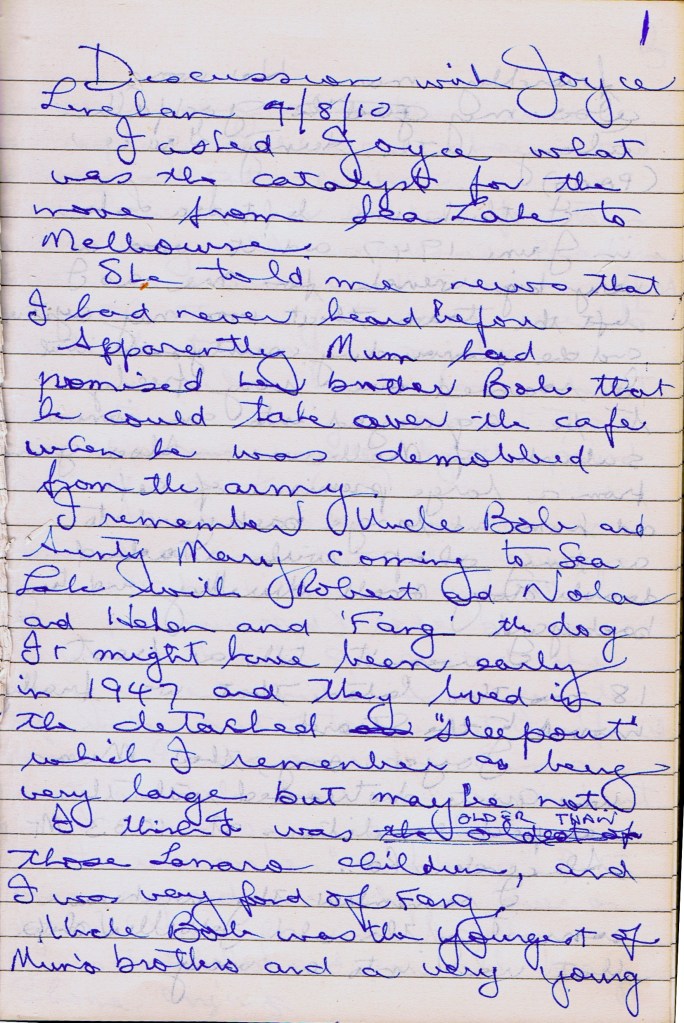 1
Discussion with Joyce
Linghan 4/8/10
I asked Joyce what
was the catalyst for the
move from Sea Lake to
Melbourne.
She told me news that
I had never heard before
Apparently Mum had
promised her brother Bob that
he could take over the cafe
when he was demobbed
from the army.
I remember Uncle Bob and
Aunty Mary coming to Sea
Lake with Robert and Nola
and Helen and 'Fang' the dog
It might have been early
in 1947 and they lived in
the detached "sleepout"
which I remember as being
very large but maybe not.
OLDER THAN
I think I was the oldest of
those children, and
I was very fond of Fang.
Uncle Bob was the youngest of
Mum's brothers and a very young